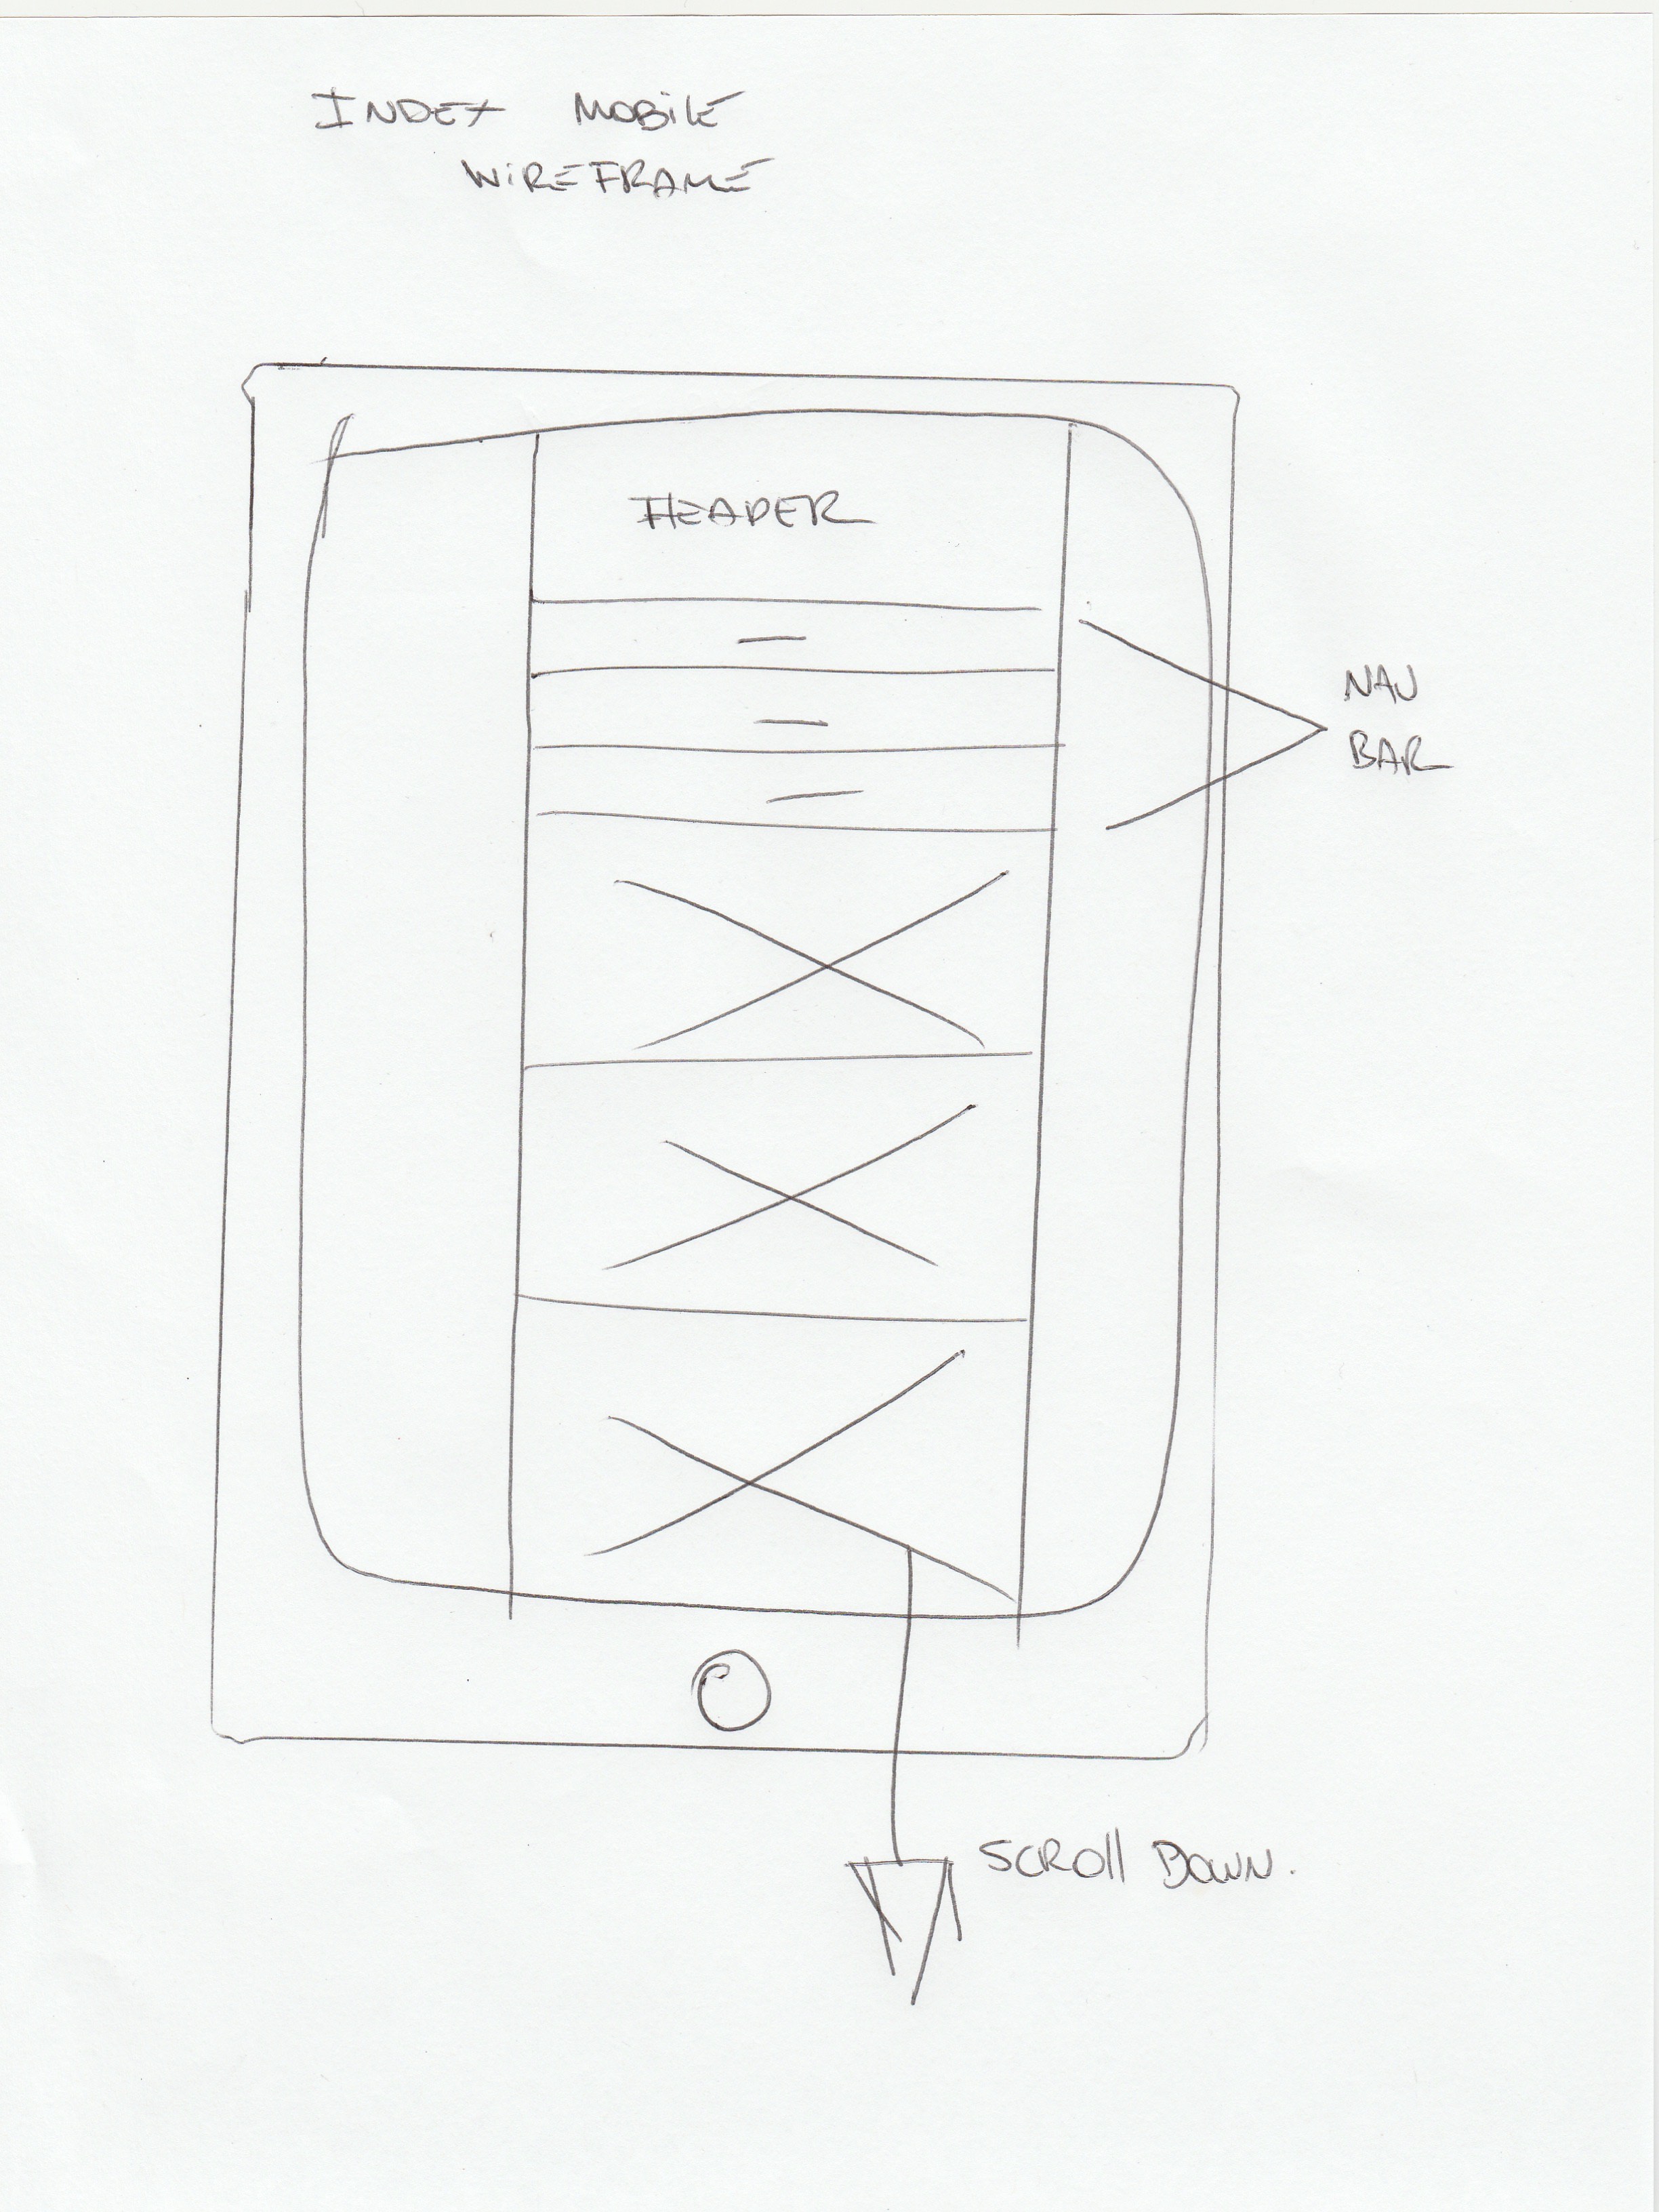 INDEX MOBILE
WIREFRAME
HEADER
NAV
BAR
SCROll DOWN.